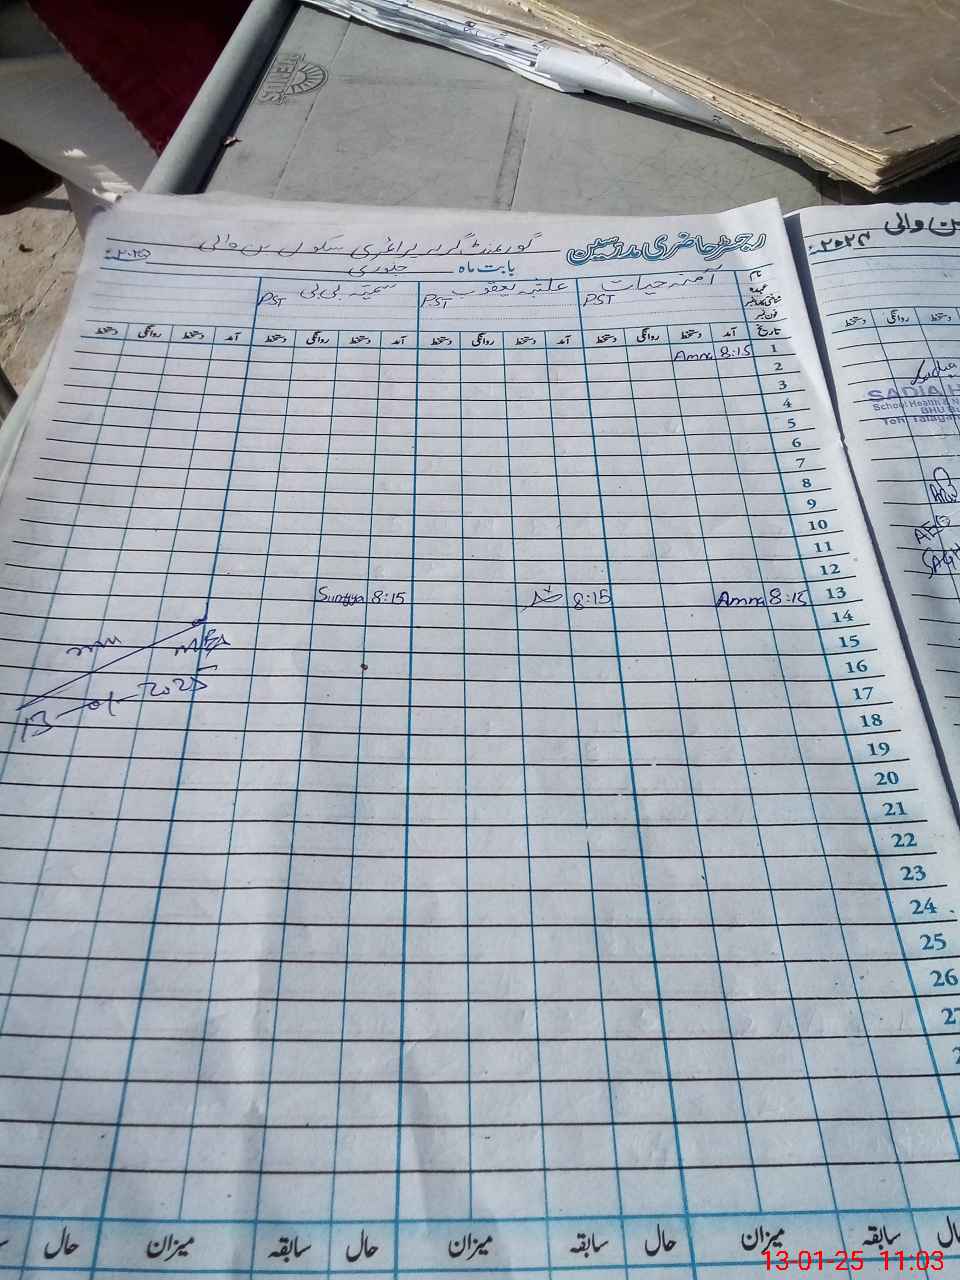 رجسٹر حاضری مدرسین گورنمنٹ گرلز پرائمری سکول بن والی
بابت ماہ جنوری ۲۰۲۵ء
نام آمنہ حیات عظمیٰ یعقوب سمیتہ بی بی
عہدہ PST PST PST
شناختی کارڈ نمبر
فون نمبر
تاریخ آمد دستخط روانگی دستخط آمد دستخط روانگی دستخط آمد دستخط روانگی دستخط آمد دستخط روانگی دستخط
1 8:15 Amna
2
3
4
5
6
7
8
9
10
11
12
13 8:15 Amna 8:15 8:15 Sumyya
14
15
16
17
18
19
20
21
22
23
24
25
26
27
13-01-2025
میزان سابقہ حال میزان سابقہ حال میزان سابقہ حال
۲۰۲۴ء
دستخط روانگی دستخط
Sadia
SADIA H
School Health & N
BHU Bu
Teh: Talagan
AEO
SAGH
STYLE
13-01-25 11:03